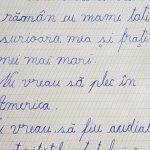 rămân cu mami tati
surioara mea și frați
mei mai mari.
Nu vreau să plec în
America.
vreau să fiu audiat